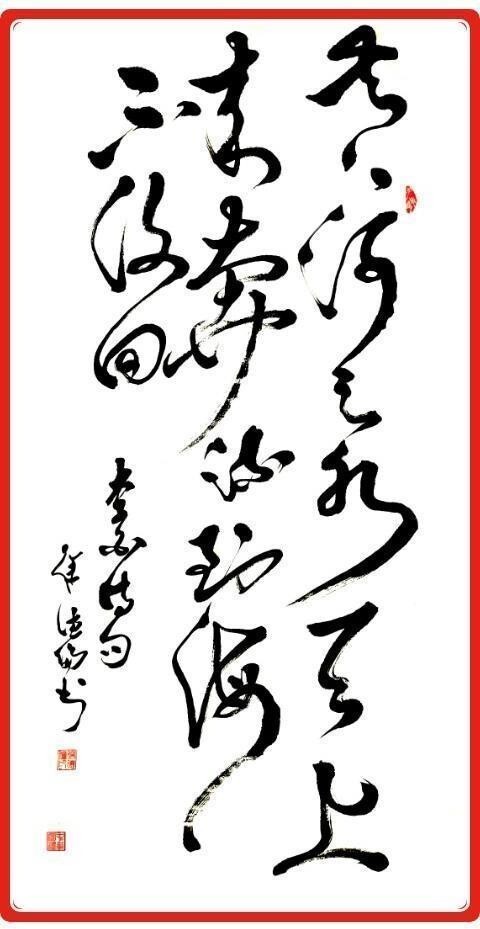 黄河之水天上
来奔流到海
不复回
李白诗句
徐德书